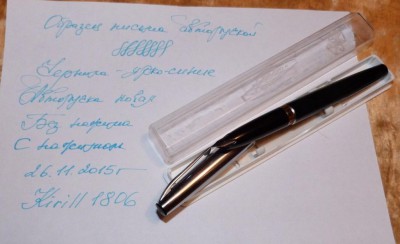 Образец письма Авторучкой
Чернила Ярко-синие
Авторучка новая
Без нажима
С нажимом
26.11.2015г
Kirill 1806